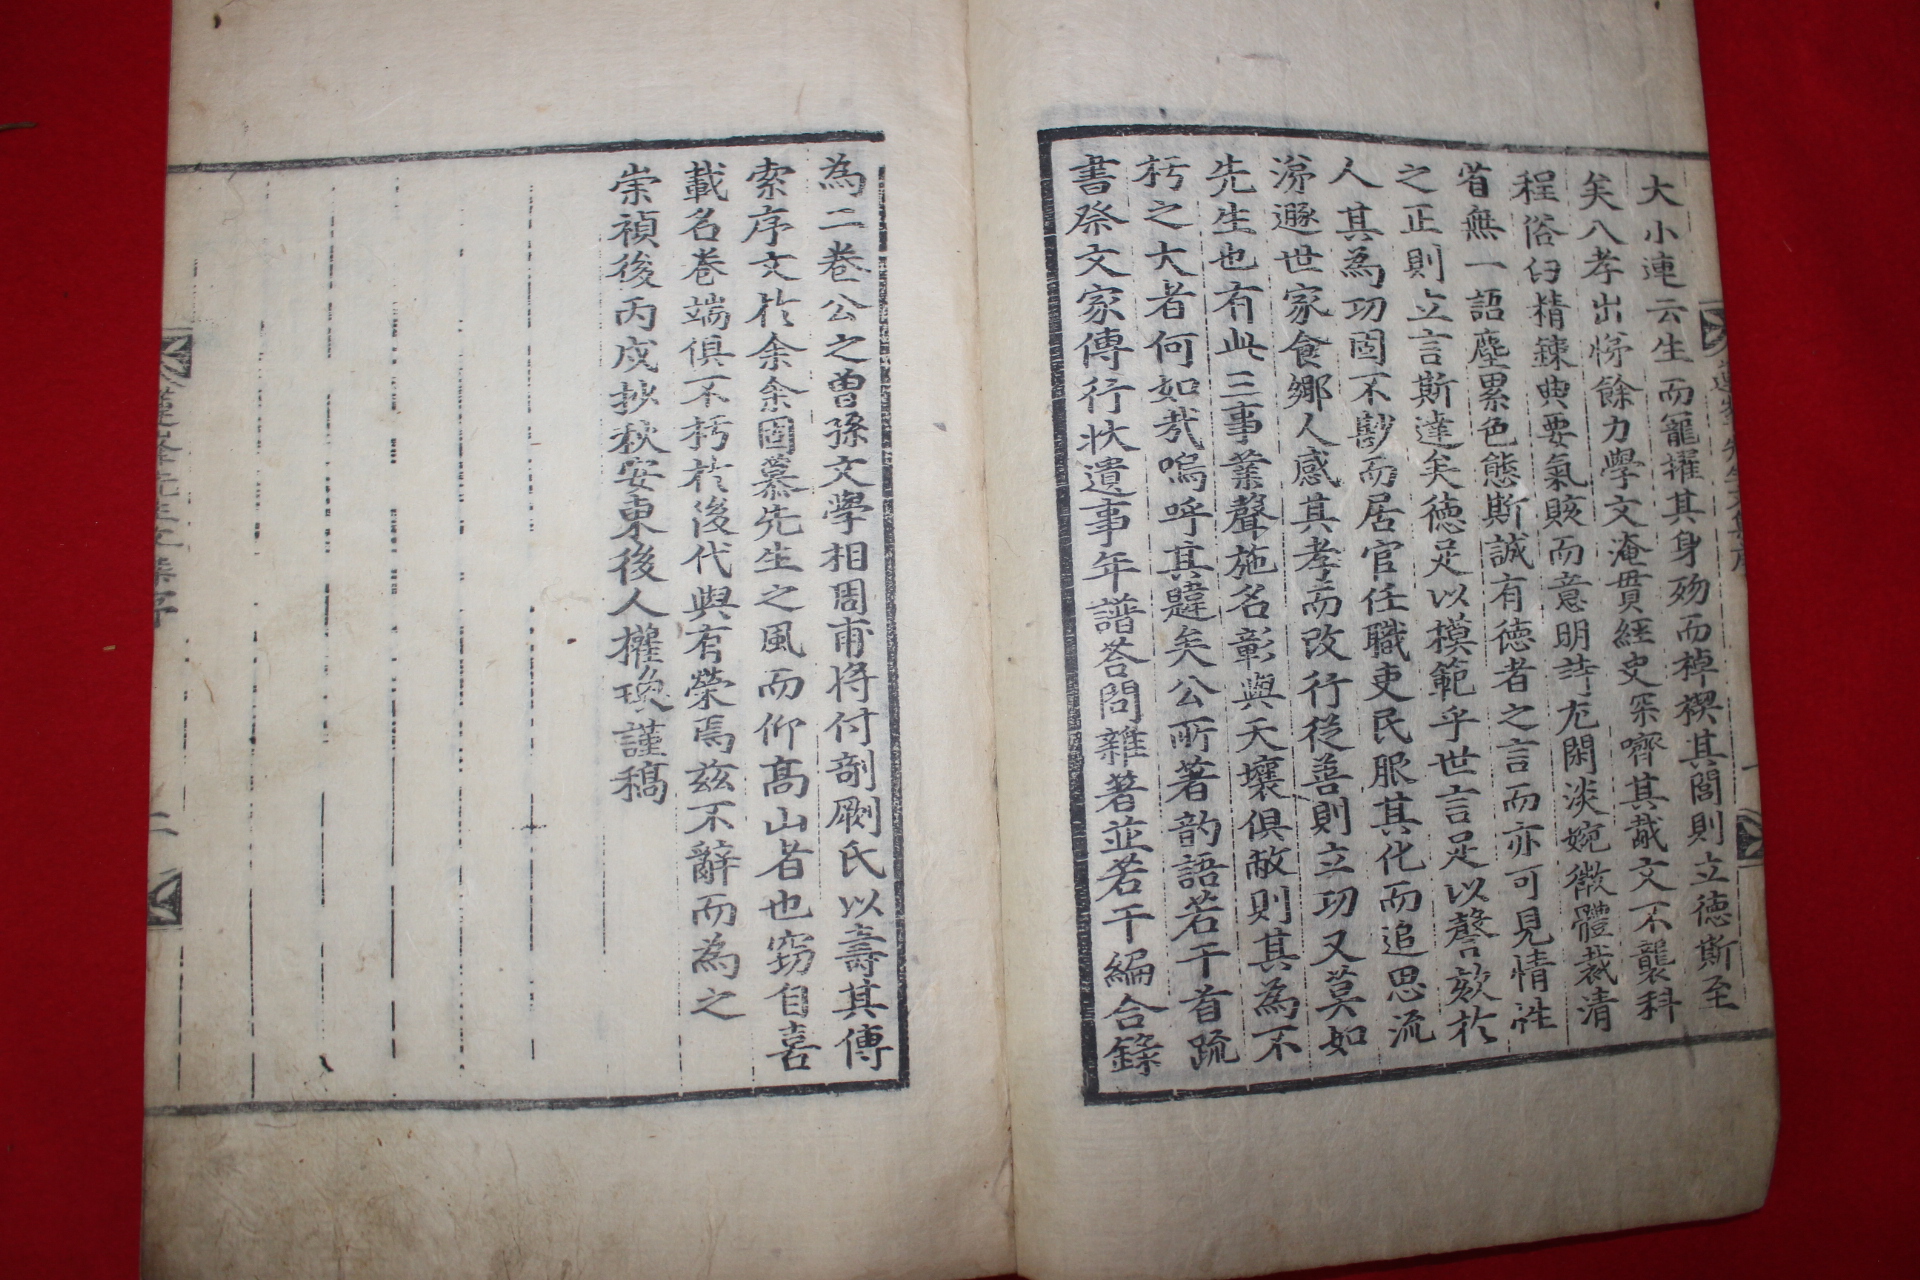 大小連云生而寵擢其身歿而棹楔其閭則立德斯至
矣八孝出悌餘力學文淹貫經史罙嚌其胾文不襲科
程俗臼精鍊典要氣賅而意明詩尤閑淡婉微體裁清
省無一語塵累色態斯誠有德者之言而亦可見情性
之正則立言斯達矣德足以模範乎世言足以謦欬於
人其為功固不尠而居官任職吏民服其化而追思流
涕遯世家食鄉人感其孝而改行從善則立功又莫如
先生也有此三事業聲施名彰與天壤俱敝則其為不
朽之大者何如哉嗚呼其韙矣公所著韵語若干首疏
書祭文家傳行狀遺事年譜答問雜著並若干編合錄
為二卷公之曾孫文學相周甫將付剞劂氏以壽其傳
索序文於余余固慕先生之風而仰高山者也窃自喜
載名卷端俱不朽於後代與有榮焉玆不辭而為之
崇禎後丙戌抄秋安東後人權瑍謹稿
先生文集序
二